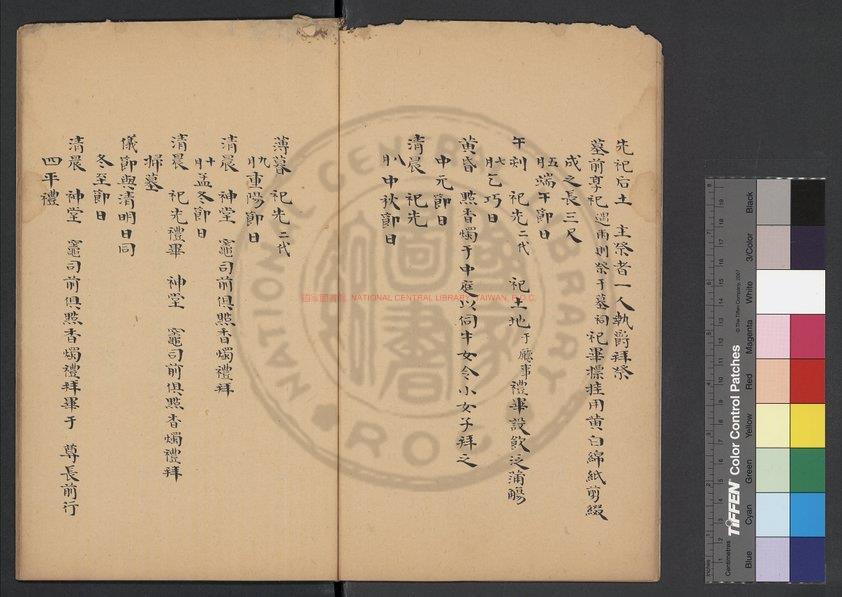 先祀后土 主祭者一人執爵拜祭
墓前享祀遇雨則祭于墓祠祀畢標挂用黃白綿紙剪綴
成之長三尺
五月端午節日
午刻 祀先二代 祀土地于廳事禮畢設飲泛蒲觴
七月乞巧日
黃昏 點香燭于中庭以伺牛女令小女子拜之
中元節日
清晨 祀先
八月中秋節日
薄暮 祀先二代
九月重陽節日
清晨 神堂 竈司前俱點香燭禮拜
十月孟冬節日
清晨 祀先禮畢 神堂 竈司前俱點香燭禮拜
掃墓
儀節與清明日同
冬至節日
清晨 神堂 竈司前俱點香燭禮拜畢于 尊長前行
四平禮
國家圖書館 NATIONAL CENTRAL LIBRARY, TAIWAN, R.O.C.
NATIONAL CENTRAL LIBRARY
ROC
國家圖書館
TIFFEN Color Control Patches
© The Tiffen Company, 2007
Centimetres
Inches
Blue
Cyan
Green
Yellow
Red
Magenta
White
3/Color
Black